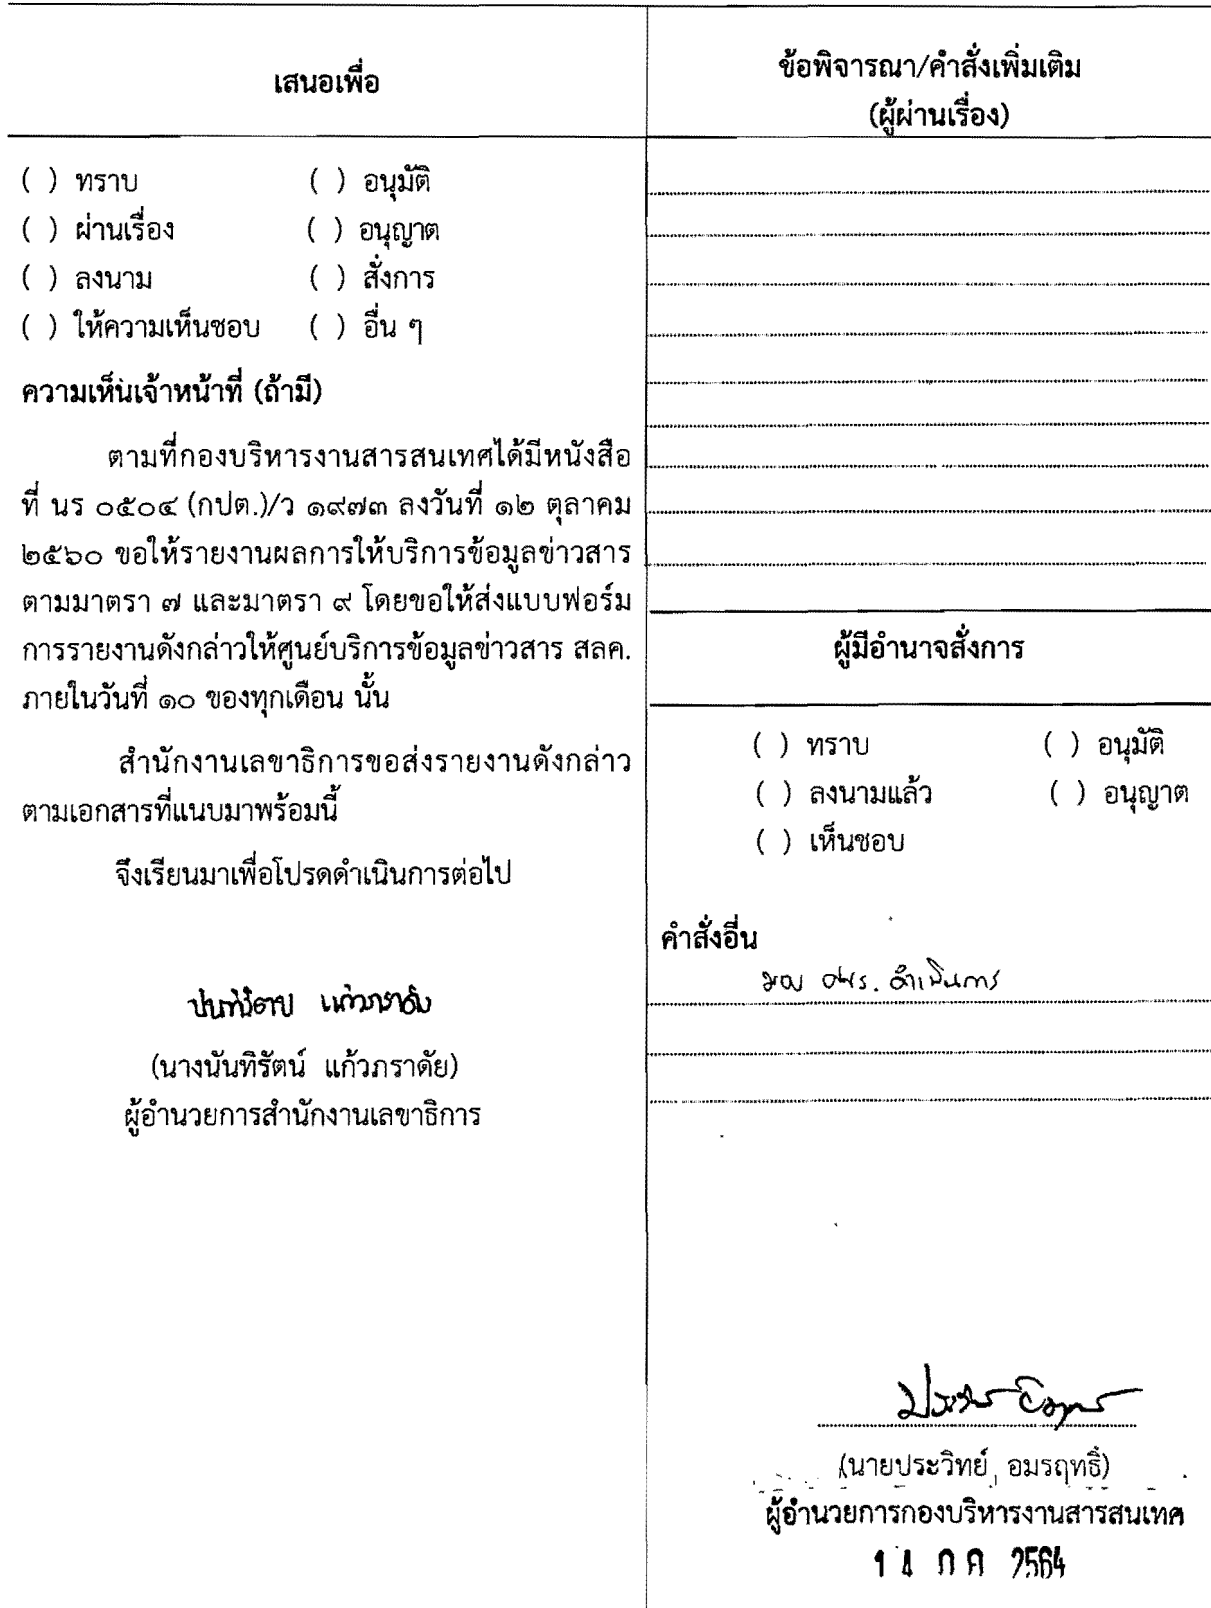 เสนอเพื่อ
( ) ทราบ ( ) อนุมัติ
( ) ผ่านเรื่อง ( ) อนุญาต
( ) ลงนาม ( ) สั่งการ
( ) ให้ความเห็นชอบ ( ) อื่น ๆ
ความเห็นเจ้าหน้าที่ (ถ้ามี)
ตามที่กองบริหารงานสารสนเทศได้มีหนังสือ
ที่ นร ๐๕๐๔ (กปต.)/ว ๑๙๗๓ ลงวันที่ ๑๒ ตุลาคม
๒๕๖๐ ขอให้รายงานผลการให้บริการข้อมูลข่าวสาร
ตามมาตรา ๗ และมาตรา ๙ โดยขอให้ส่งแบบฟอร์ม
การรายงานดังกล่าวให้ศูนย์บริการข้อมูลข่าวสาร สลค.
ภายในวันที่ ๑๐ ของทุกเดือน นั้น
สำนักงานเลขาธิการขอส่งรายงานดังกล่าว
ตามเอกสารที่แนบมาพร้อมนี้
จึงเรียนมาเพื่อโปรดดำเนินการต่อไป
(นางนันทิรัตน์ แก้วภราดัย)
ผู้อำนวยการสำนักงานเลขาธิการ
ข้อพิจารณา/คำสั่งเพิ่มเติม
(ผู้ผ่านเรื่อง)
ผู้มีอำนาจสั่งการ
( ) ทราบ ( ) อนุมัติ
( ) ลงนามแล้ว ( ) อนุญาต
( ) เห็นชอบ
คำสั่งอื่น
มอบ ดำเนินการ
(นายประวิทย์ อมรฤทธิ์)
ผู้อำนวยการกองบริหารงานสารสนเทศ
14 ก ค 2564